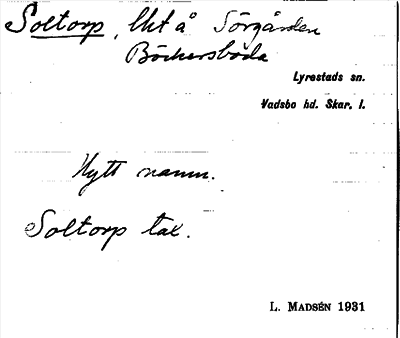 Soltorp, lht å Sörgården
Böckersboda
Lyrestads sn.
Vadsbo hd. Skar. l.
Nytt namn.
Soltorp tax.
L. MADSÉN 1931